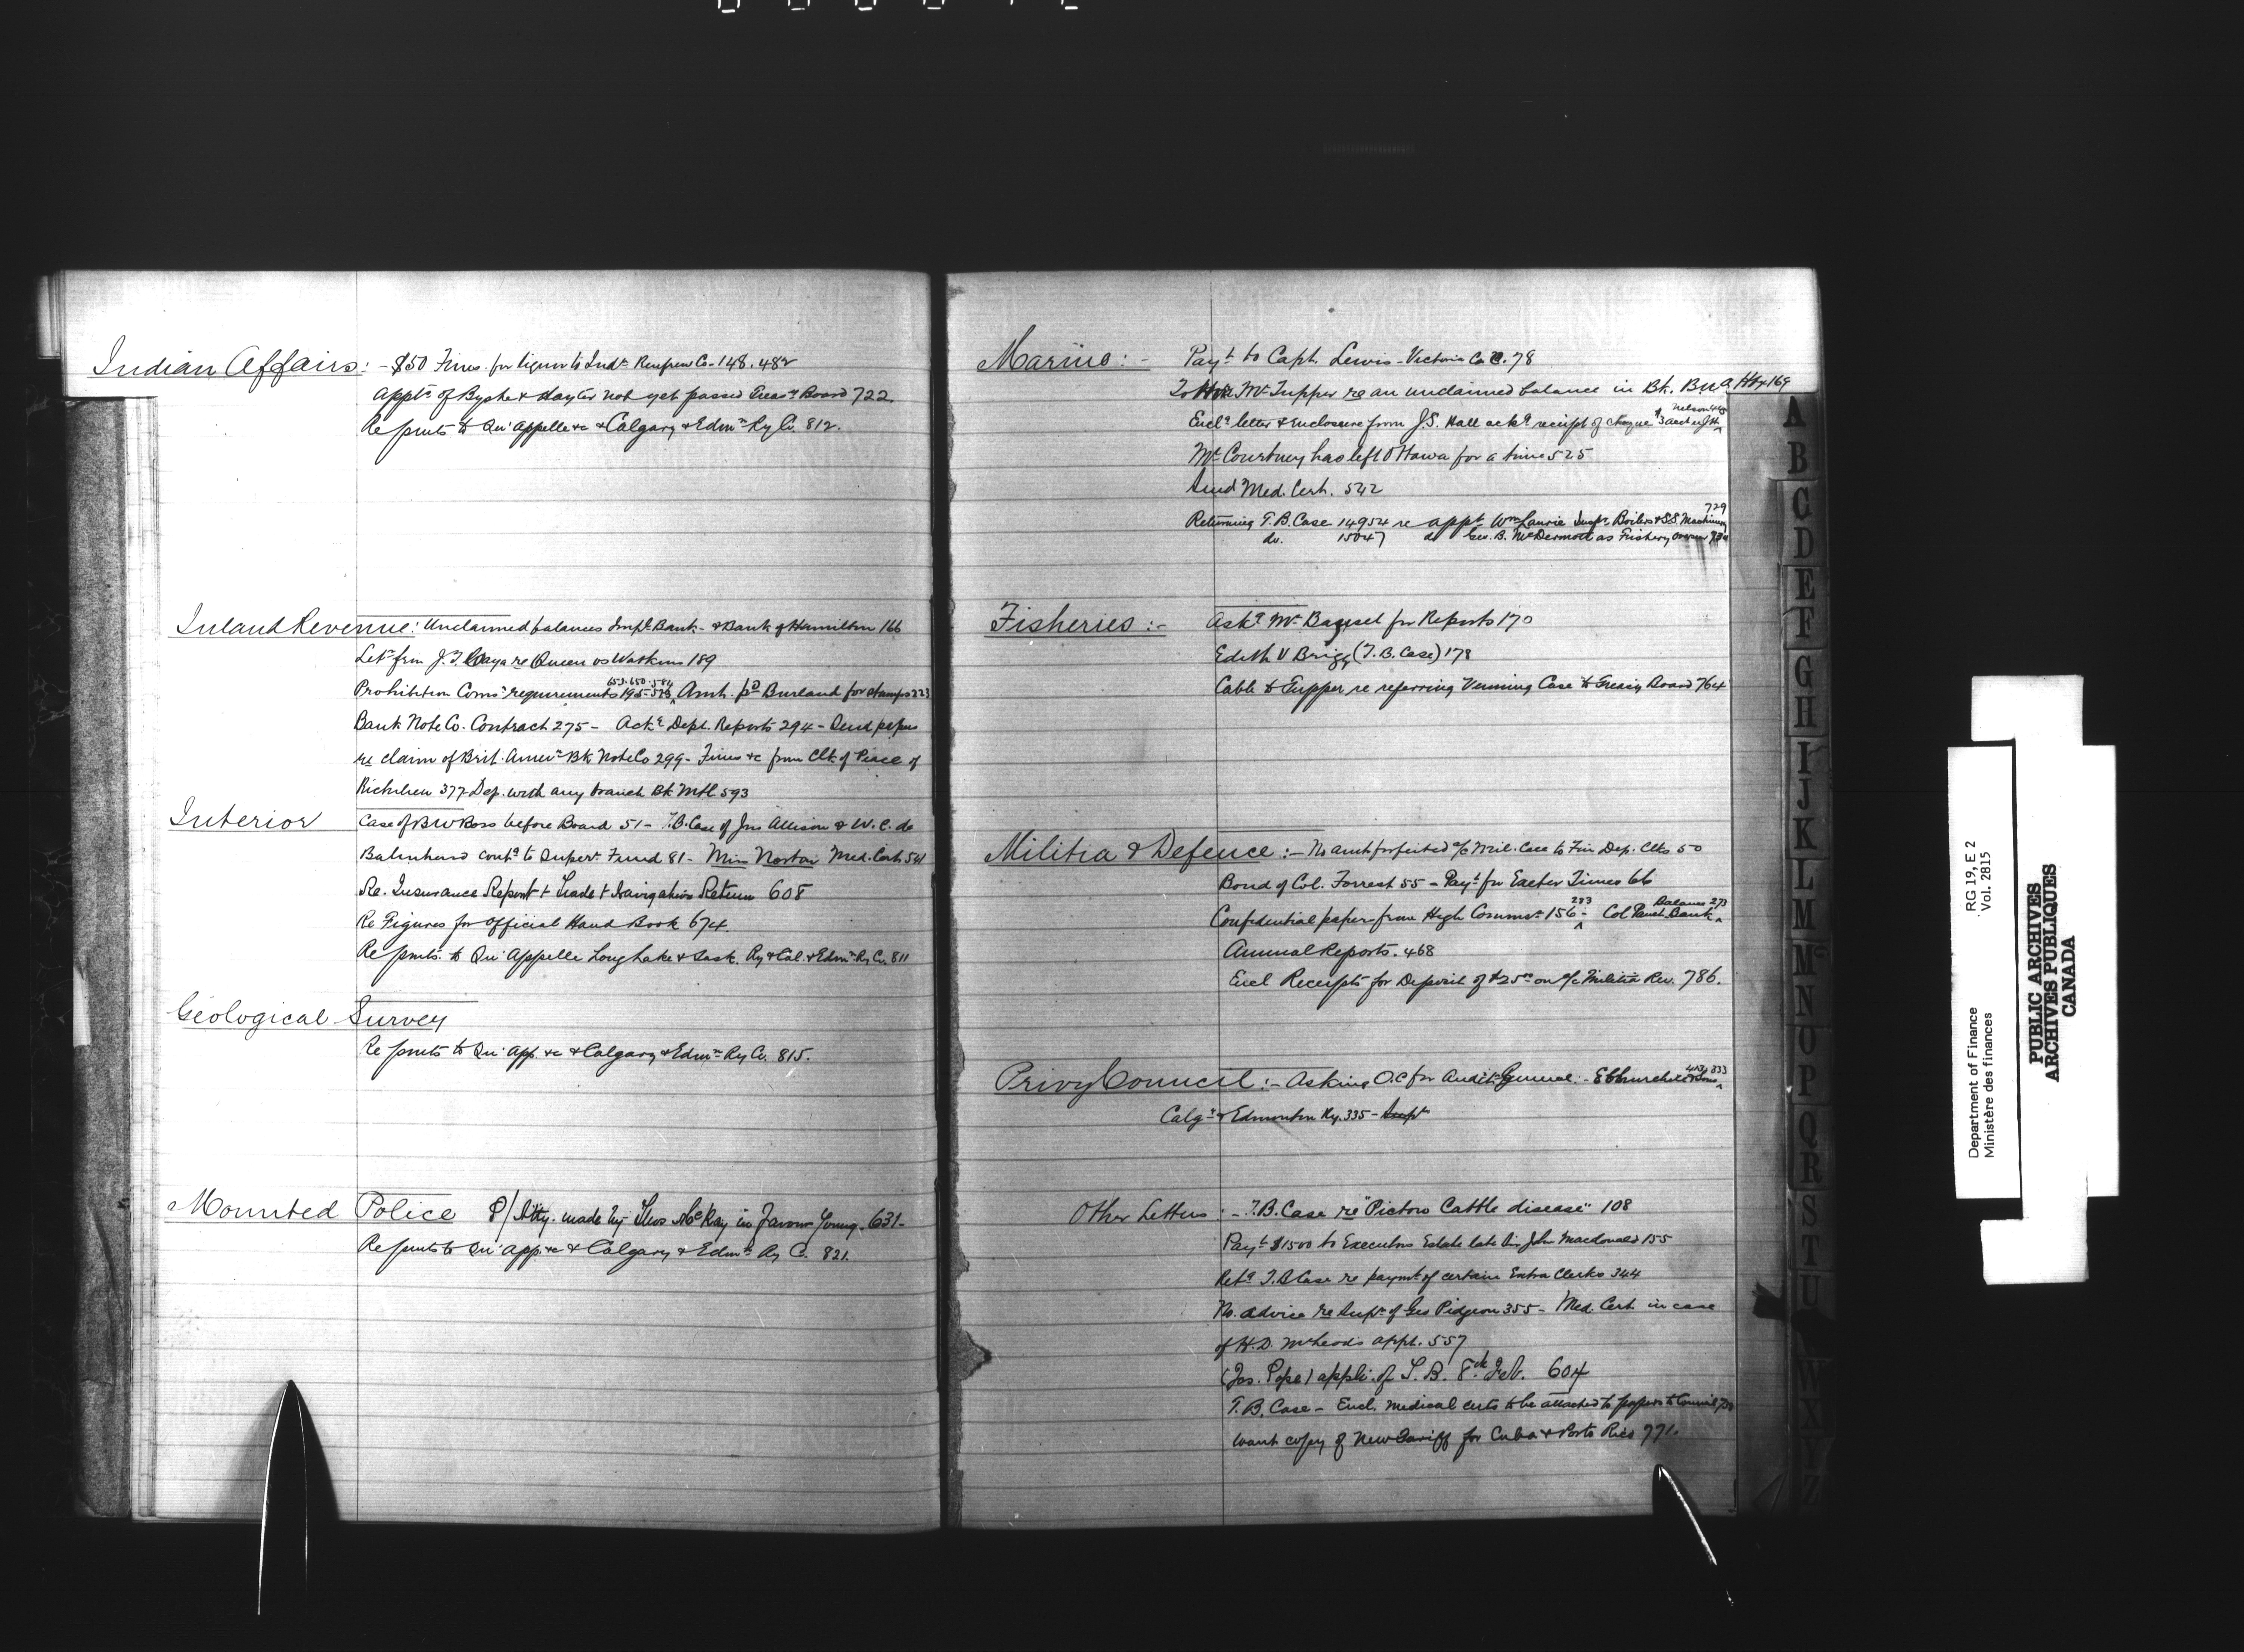 Indian Affairs: - $50 Fines for liquor to Inds Renfrew Co. 148. 482
Appts of Byshe & Hayter not yet passed Treasy Board 722
Re pmts to Qu'Appelle &c & Calgary & Edmn Ry Co. 812.
Inland Revenue: Unclaimed balances Impl Bank - & Bank of Hamilton 166
Letr from J. T. re Queen vs Watkins 189
Prohibition Coms' requirements 195-573 653.650.584 Amt. pd Burland for stamps 223
Bank Note Co. Contract 275 - Ackg Dept. Reports 294 - Send papers
re claim of Brit. Amern Bk Note Co 299 - Fines &c from Clk of Peace of
Richelieu 377 Dep. with any branch Bk Mtl 593
Interior Case of B W Ross before Board 51 - T.B. Case of Jno Allison & W. C. de
Balinhard contg to Super. Fund 81 - Miss Norton Med. Cert 541
Re. Insurance Report & Trade & Navigation Return 608
Re Figures for Official Hand Book 674.
Re pmts. to Qu'Appelle Long Lake & Sask. Ry & Cal. & Edmn Ry Co. 811
Geological Survey
Re pmts to Qu'App. &c & Calgary & Edmn Ry Co. 815.
Mounted Police P/Atty. made by Thos McKay in favour Young. 631-
Re pmts to Qu'App. &c & Calgary & Edmn Ry Co. 821.
Marine: - Payt to Capt. Lewis - Victoria Co 78
To Mr Tupper re an unclaimed balance in Bk. B.N.A. Hfx 169
Encl letter & enclosure from J.S. Hall ackg receipt of cheque Nelson
Mr Courtney has left Ottawa for a time 525
Send Med. Cert. 542
Returning T.B. Case 14954 re appt Wm Laurie Inspr Boilers & S.S. Machinery 729
do. 15047 do Geo. B. McDermott as Fishery
Fisheries: - Askg Mr Bauset for Reports 170
Edith V Brigg (T.B. Case) 178
Cable to Tupper re referring Venning Case to Treasy Board 764
Militia & Defence: - No amt forfeited a/c Mil. Coll to Fin Dep. Clks 50
Bond of Col. Forrest 55 - Payt for Exeter Times 66
Confidential papers from High Commr 156 - 283 Col Panet Bank Balance 273
Annual Reports. 468
Encl Receipts for Deposit of $25 on a/c Militia Rev. 786.
Privy Council: - Asking O.C for Auditr General: - E Churchill & Sons 333
Calgy & Edmonton Ry. 335 - Supt
Other Letters: - T.B. Case re "Pictou Cattle disease" 108
Payt $1500 to Executors Estate late Sir John Macdonald 155
Retg T.B Case re paymt of certain Extra Clerks 344
No. advice re Supn of Geo Pidgeon 355 - Med. Cert in case
of H.D. McLeod's appt. 557
(Jos. Pope) appli. of T. B. 8th Feb. 604
T.B. Case - Encl. Medical certs to be attached to papers to Council
Want copy of New Tariff for Cuba & Porto Rico 771.
A
B
C
D
E
F
G
H
I
J
K
L
M
Mc
N
O
P
Q
R
S
T
U
W
X
Y
Z
Department of Finance RG 19, E 2
Ministère des finances Vol. 2815
PUBLIC ARCHIVES
ARCHIVES PUBLIQUES
CANADA